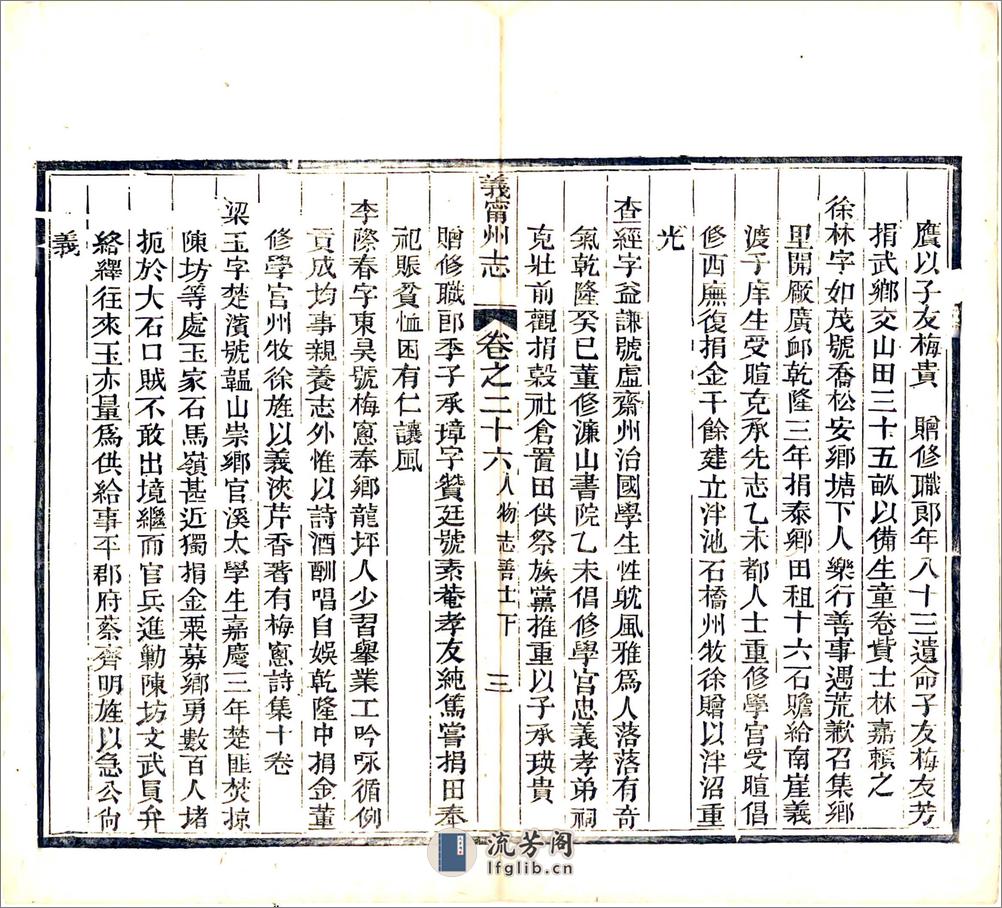 膺以子友梅貴　贈修職郎年八十三遺命子友梅友芳
捐武鄉交山田三十五畝以備生童卷貲士林嘉賴之
徐林字如茂號喬松安鄉塘下人樂行善事遇荒歉召集鄉
里開厰廣䘏乾隆三年捐泰鄉田租十六石贍給南崖義
渡子庠生受暄克承先志乙未都人士重修學宮受暄倡
修西廡復捐金千餘建立泮池石橋州牧徐贈以泮沼重
光
查經字益謙號虛齋州治國學生性躭風雅爲人落落有奇
氣乾隆癸巳董修濂山書院乙未倡修學宮忠義孝弟祠
克壯前觀捐穀社倉置田供祭族黨推重以子承瑛貴
義甯州志　卷之二十六人物志善士下　三
贈修職郎季子承璋字贊廷號素菴孝友純篤嘗捐田奉
祀賑貧恤困有仁讓風
李際春字東昊號梅窻奉鄉龍坪人少習舉業工吟咏循例
貢成均事親養志外惟以詩酒酬唱自娛乾隆中捐金董
修學宮州牧徐旌以義浹芹香著有梅窻詩集十卷
梁玉字楚濱號韞山崇鄉官溪太學生嘉慶三年楚匪焚掠
陳坊等處玉家石馬嶺甚近獨捐金粟募鄉勇數百人堵
扼於大石口賊不敢出境繼而官兵進勦陳坊文武員弁
絡繹往來玉亦量爲供給事平郡府蔡齊明旌以急公尙
義
流芳阁
lfglib.cn